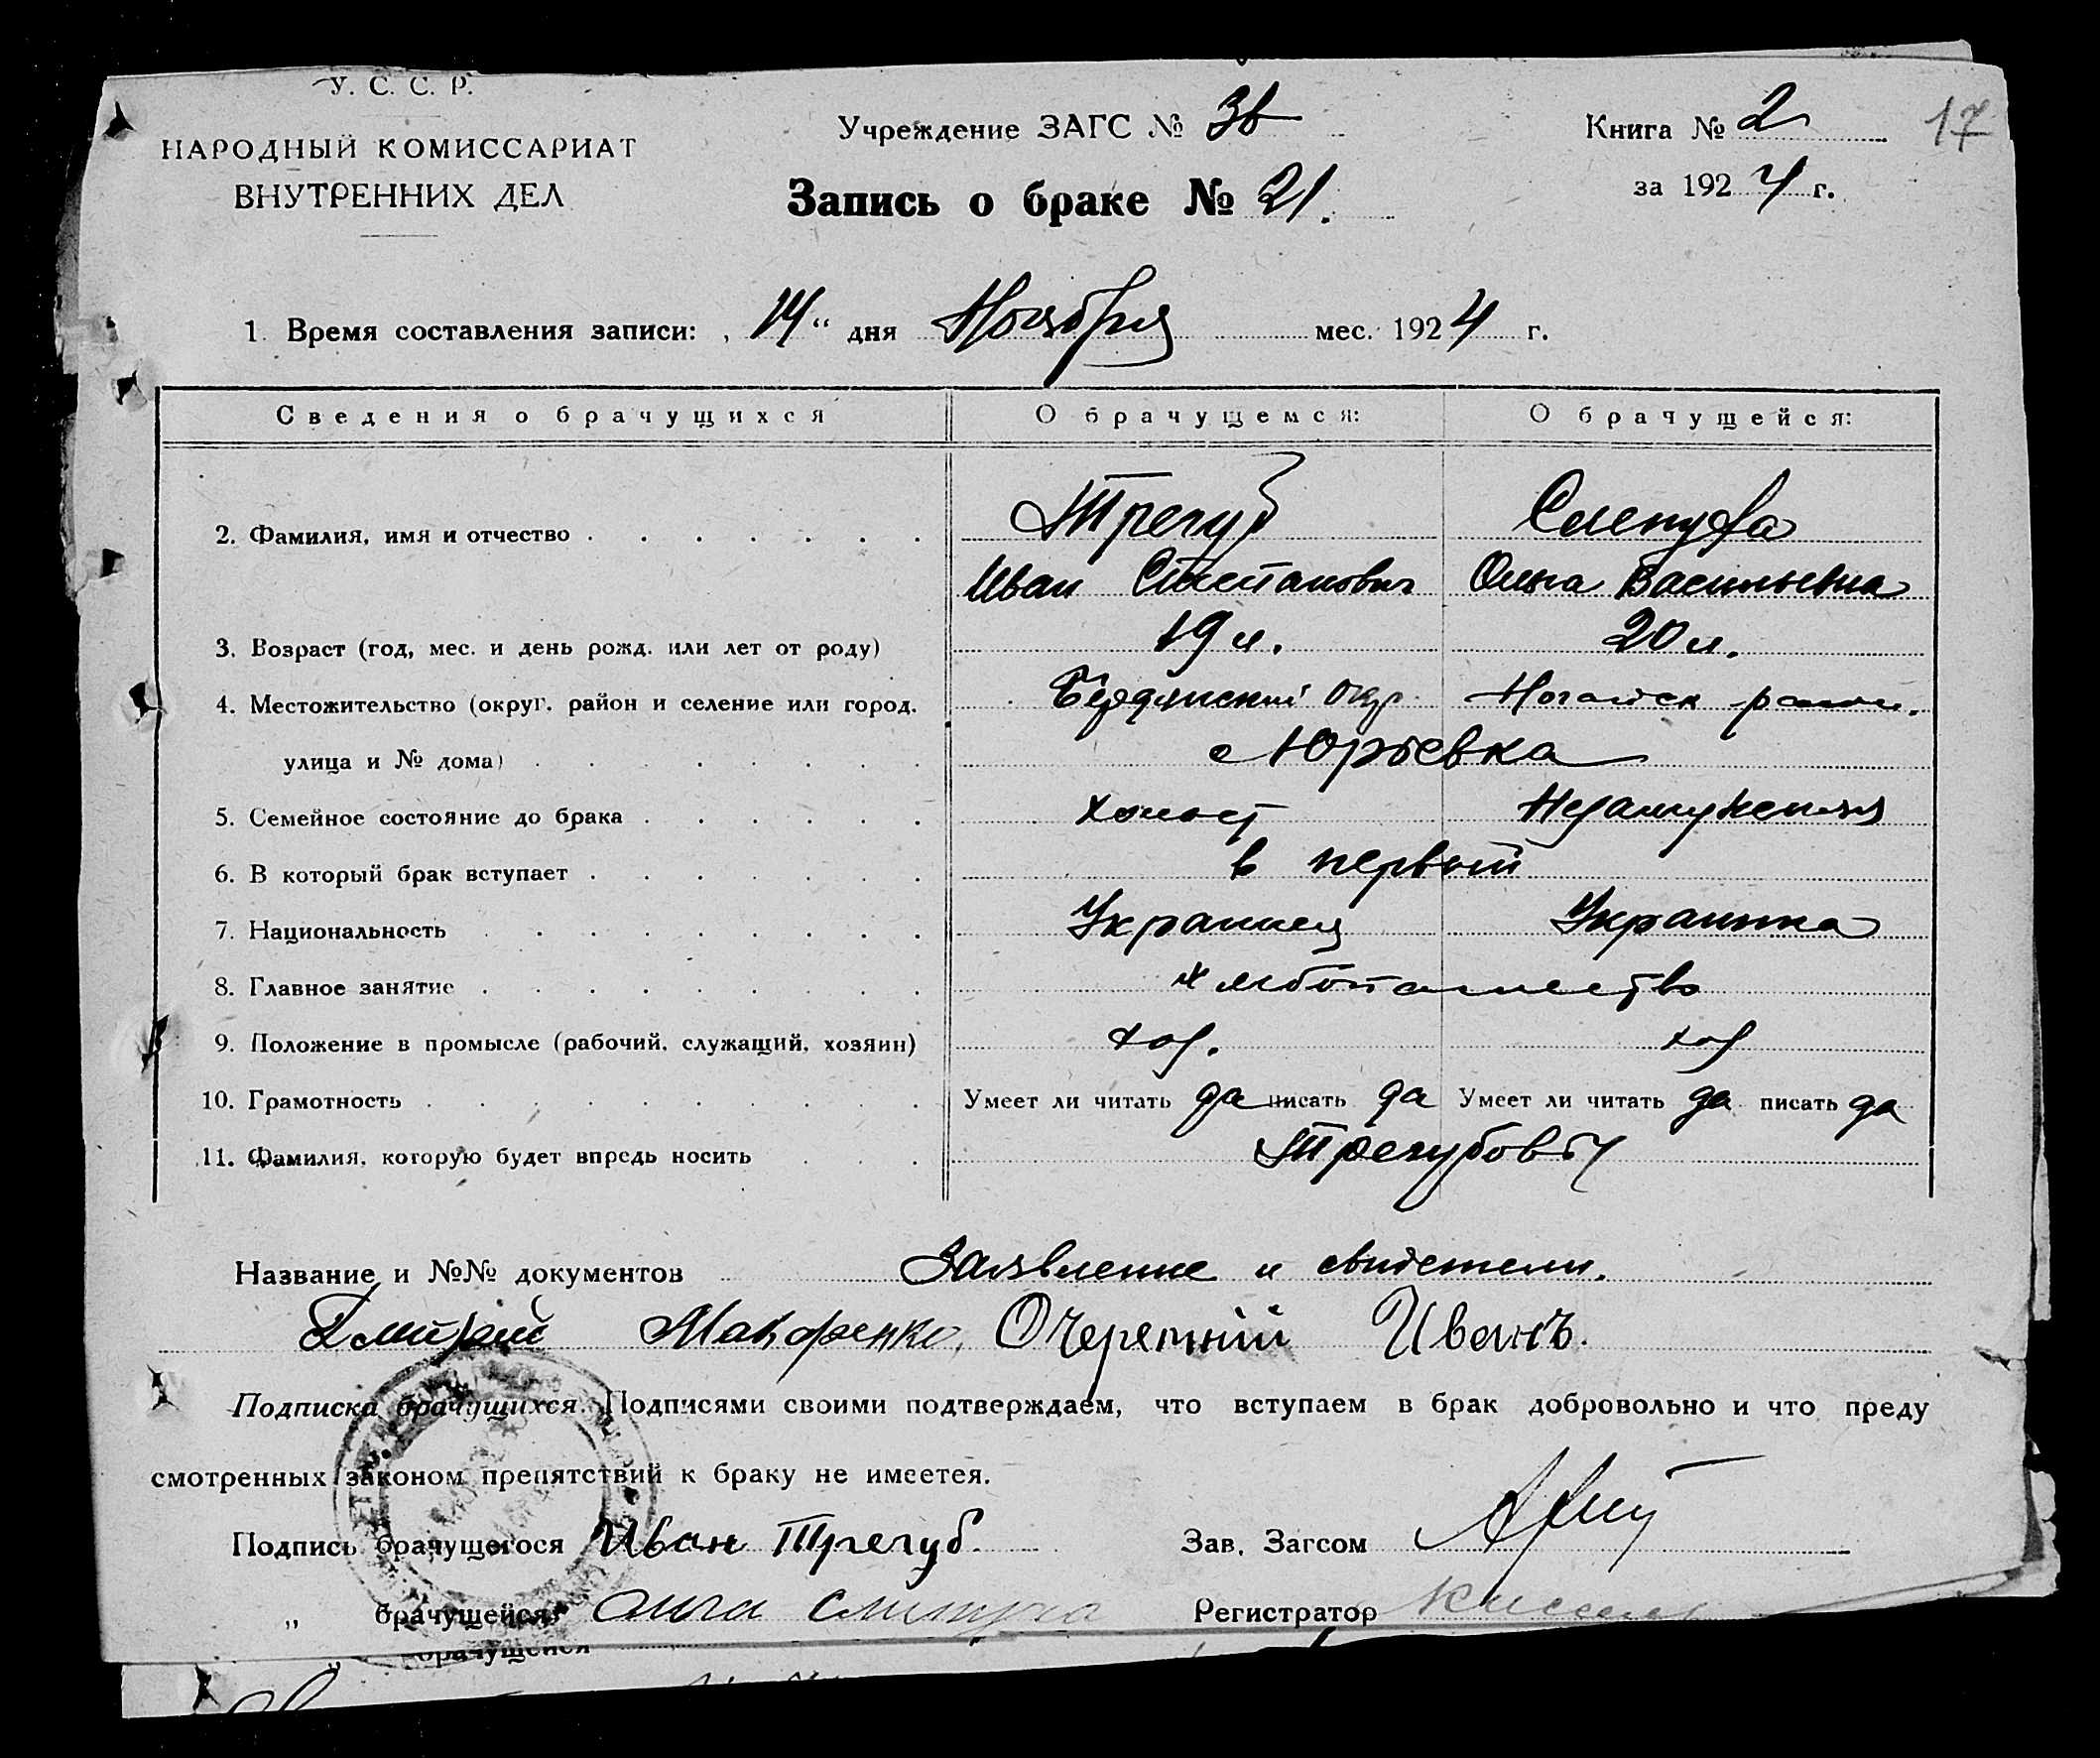 У. С. С. Р.
НАРОДНЫЙ КОМИССАРИАТ
ВНУТРЕННИХ ДЕЛ
Учреждение ЗАГС № 3в
Книга № 2
17
Запись о браке № 21.
за 1924 г.
1. Время составления записи: „14“ дня Ноября мес. 1924 г.
Сведения о брачущихся О брачущемся: О брачущейся:
Трегуб
2. Фамилия, имя и отчество
Иван Степанович Ольга Васильевна
3. Возраст (год, мес. и день рожд. или лет от роду) 19 л. 20 л.
4. Местожительство (округ. район и селение или город. Бердянский Окр. Ногайск район.
улица и № дома) с Юрьевка
5. Семейное состояние до брака холост Незамужняя
6. В который брак вступает в первый
7. Национальность Украинец Украинка
8. Главное занятие хлебопашество
9. Положение в промысле (рабочий, служащий, хозяин) хоз. хоз
10. Грамотность Умеет ли читать да писать да Умеет ли читать да писать да
11. Фамилия, которую будет впредь носить Трегубовы
Название и №№ документов Заявление и свидетели.
Дмитрий Макаренко, Очеретний Иванъ.
Подписка брачущихся. Подписями своими подтверждаем, что вступаем в брак добровольно и что преду
смотренных законом препятствий к браку не имеется.
Подпись брачущегося Иван Трегуб. Зав. Загсом
„ брачущейся Регистратор
брачущейся